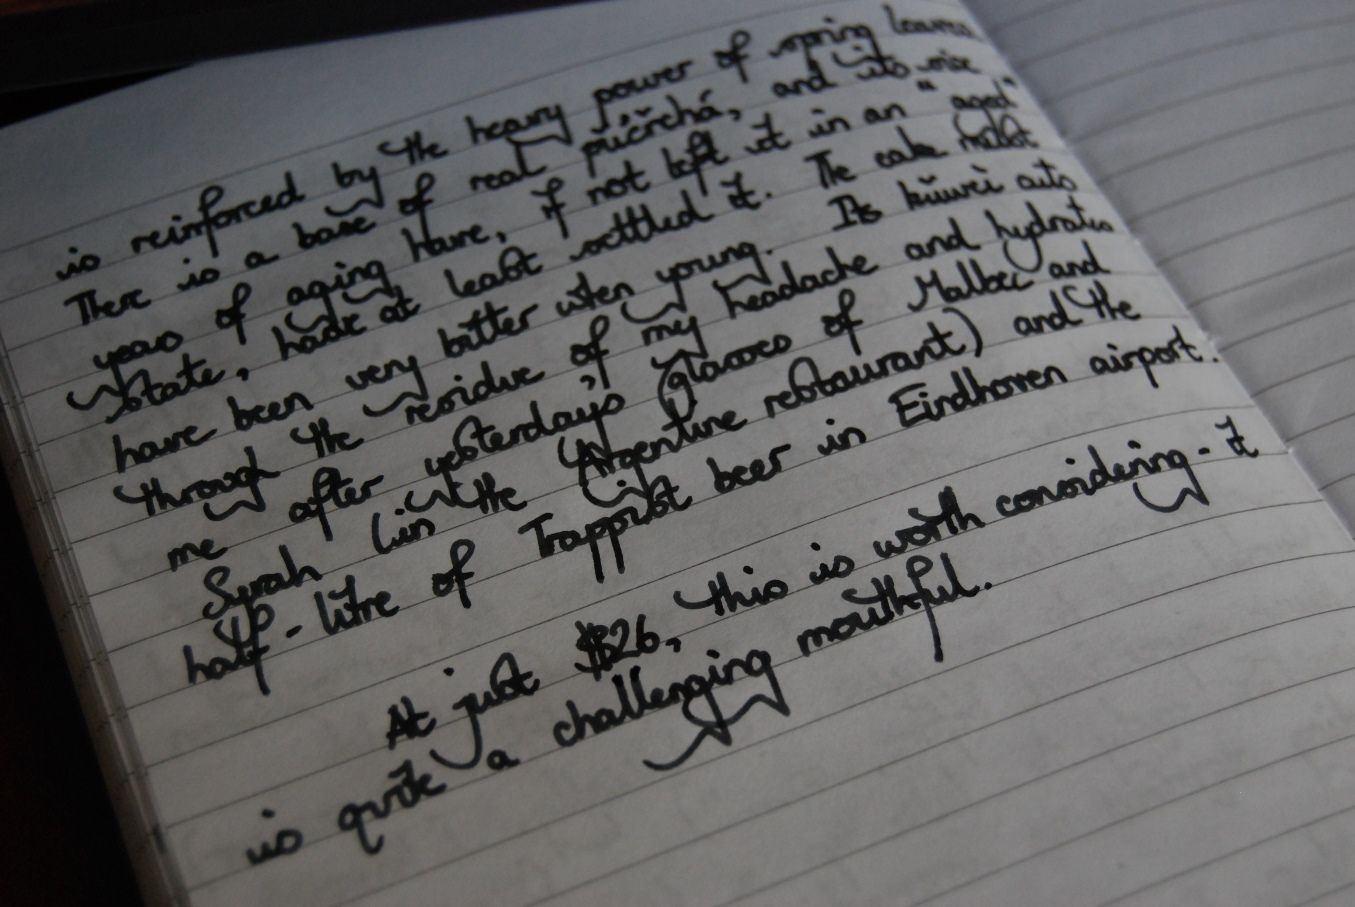 is reinforced by the heavy power of spring leaves.
There is a base of real pǔěrchá, and its six
years of aging have, if not left it in an "aged"
state, have at least settled it. The cake must
have been very bitter when young. Its kǔwèi cuts
through the residue of my headache and hydrates
me after yesterday's glasses of Malbec and
Syrah (in the Argentine restaurant) and the
half-litre of Trappist beer in Eindhoven airport.
At just $26, this is worth considering - it
is quite a challenging mouthful.